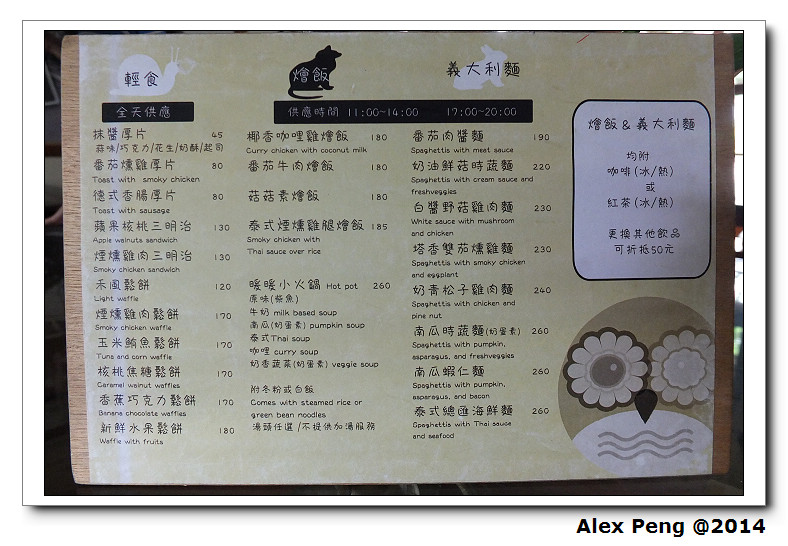 輕食
全天供應
抹醬厚片 45
蒜味/巧克力/花生/奶酥/起司
番茄燻雞厚片 80
Toast with smoky chicken
德式香腸厚片 80
Toast with sausage
蘋果核桃三明治 130
Apple walnuts sandwich
煙燻雞肉三明治 130
Smoky chicken sandwich
禾風鬆餅 120
Light waffle
煙燻雞肉鬆餅 170
Smoky chicken waffle
玉米鮪魚鬆餅 170
Tuna and corn waffle
核桃焦糖鬆餅 170
Caramel walnut waffles
香蕉巧克力鬆餅 170
Banana chocolate waffles
新鮮水果鬆餅 180
Waffle with fruits
燴飯
供應時間 11:00~14:00 17:00~20:00
椰香咖哩雞燴飯 180
Curry chicken with coconut milk
番茄牛肉燴飯 180
菇菇素燴飯 180
泰式煙燻雞腿燴飯 185
Smoky chicken with
Thai sauce over rice
暖暖小火鍋 Hot pot 260
原味(柴魚)
牛奶 milk based soup
南瓜(奶蛋素) pumpkin soup
泰式Thai soup
咖哩 curry soup
奶香蔬菜(奶蛋素) veggie soup
附冬粉或白飯
Comes with steamed rice or
green bean noodles
湯頭任選/不提供加湯服務
義大利麵
番茄肉醬麵 190
Spaghettis with meat sauce
奶油鮮菇時蔬麵 220
Spaghettis with cream sauce and
freshveggies
白醬野菇雞肉麵 230
White sauce with mushroom
and chicken
塔香雙茄燻雞麵 230
Spaghettis with smoky chicken
and eggplant
奶青松子雞肉麵 240
Spaghettis with chicken and
pine nut
南瓜時蔬麵(奶蛋素) 260
Spaghettis with pumpkin,
asparagus, and freshveggies
南瓜蝦仁麵 260
Spaghettis with pumpkin,
asparagus, and bacon
泰式總匯海鮮麵 260
Spaghettis with Thai sauce
and seafood
燴飯 & 義大利麵
均附
咖啡(冰/熱)
或
紅茶(冰/熱)
更換其他飲品
可折抵50元
Alex Peng @2014